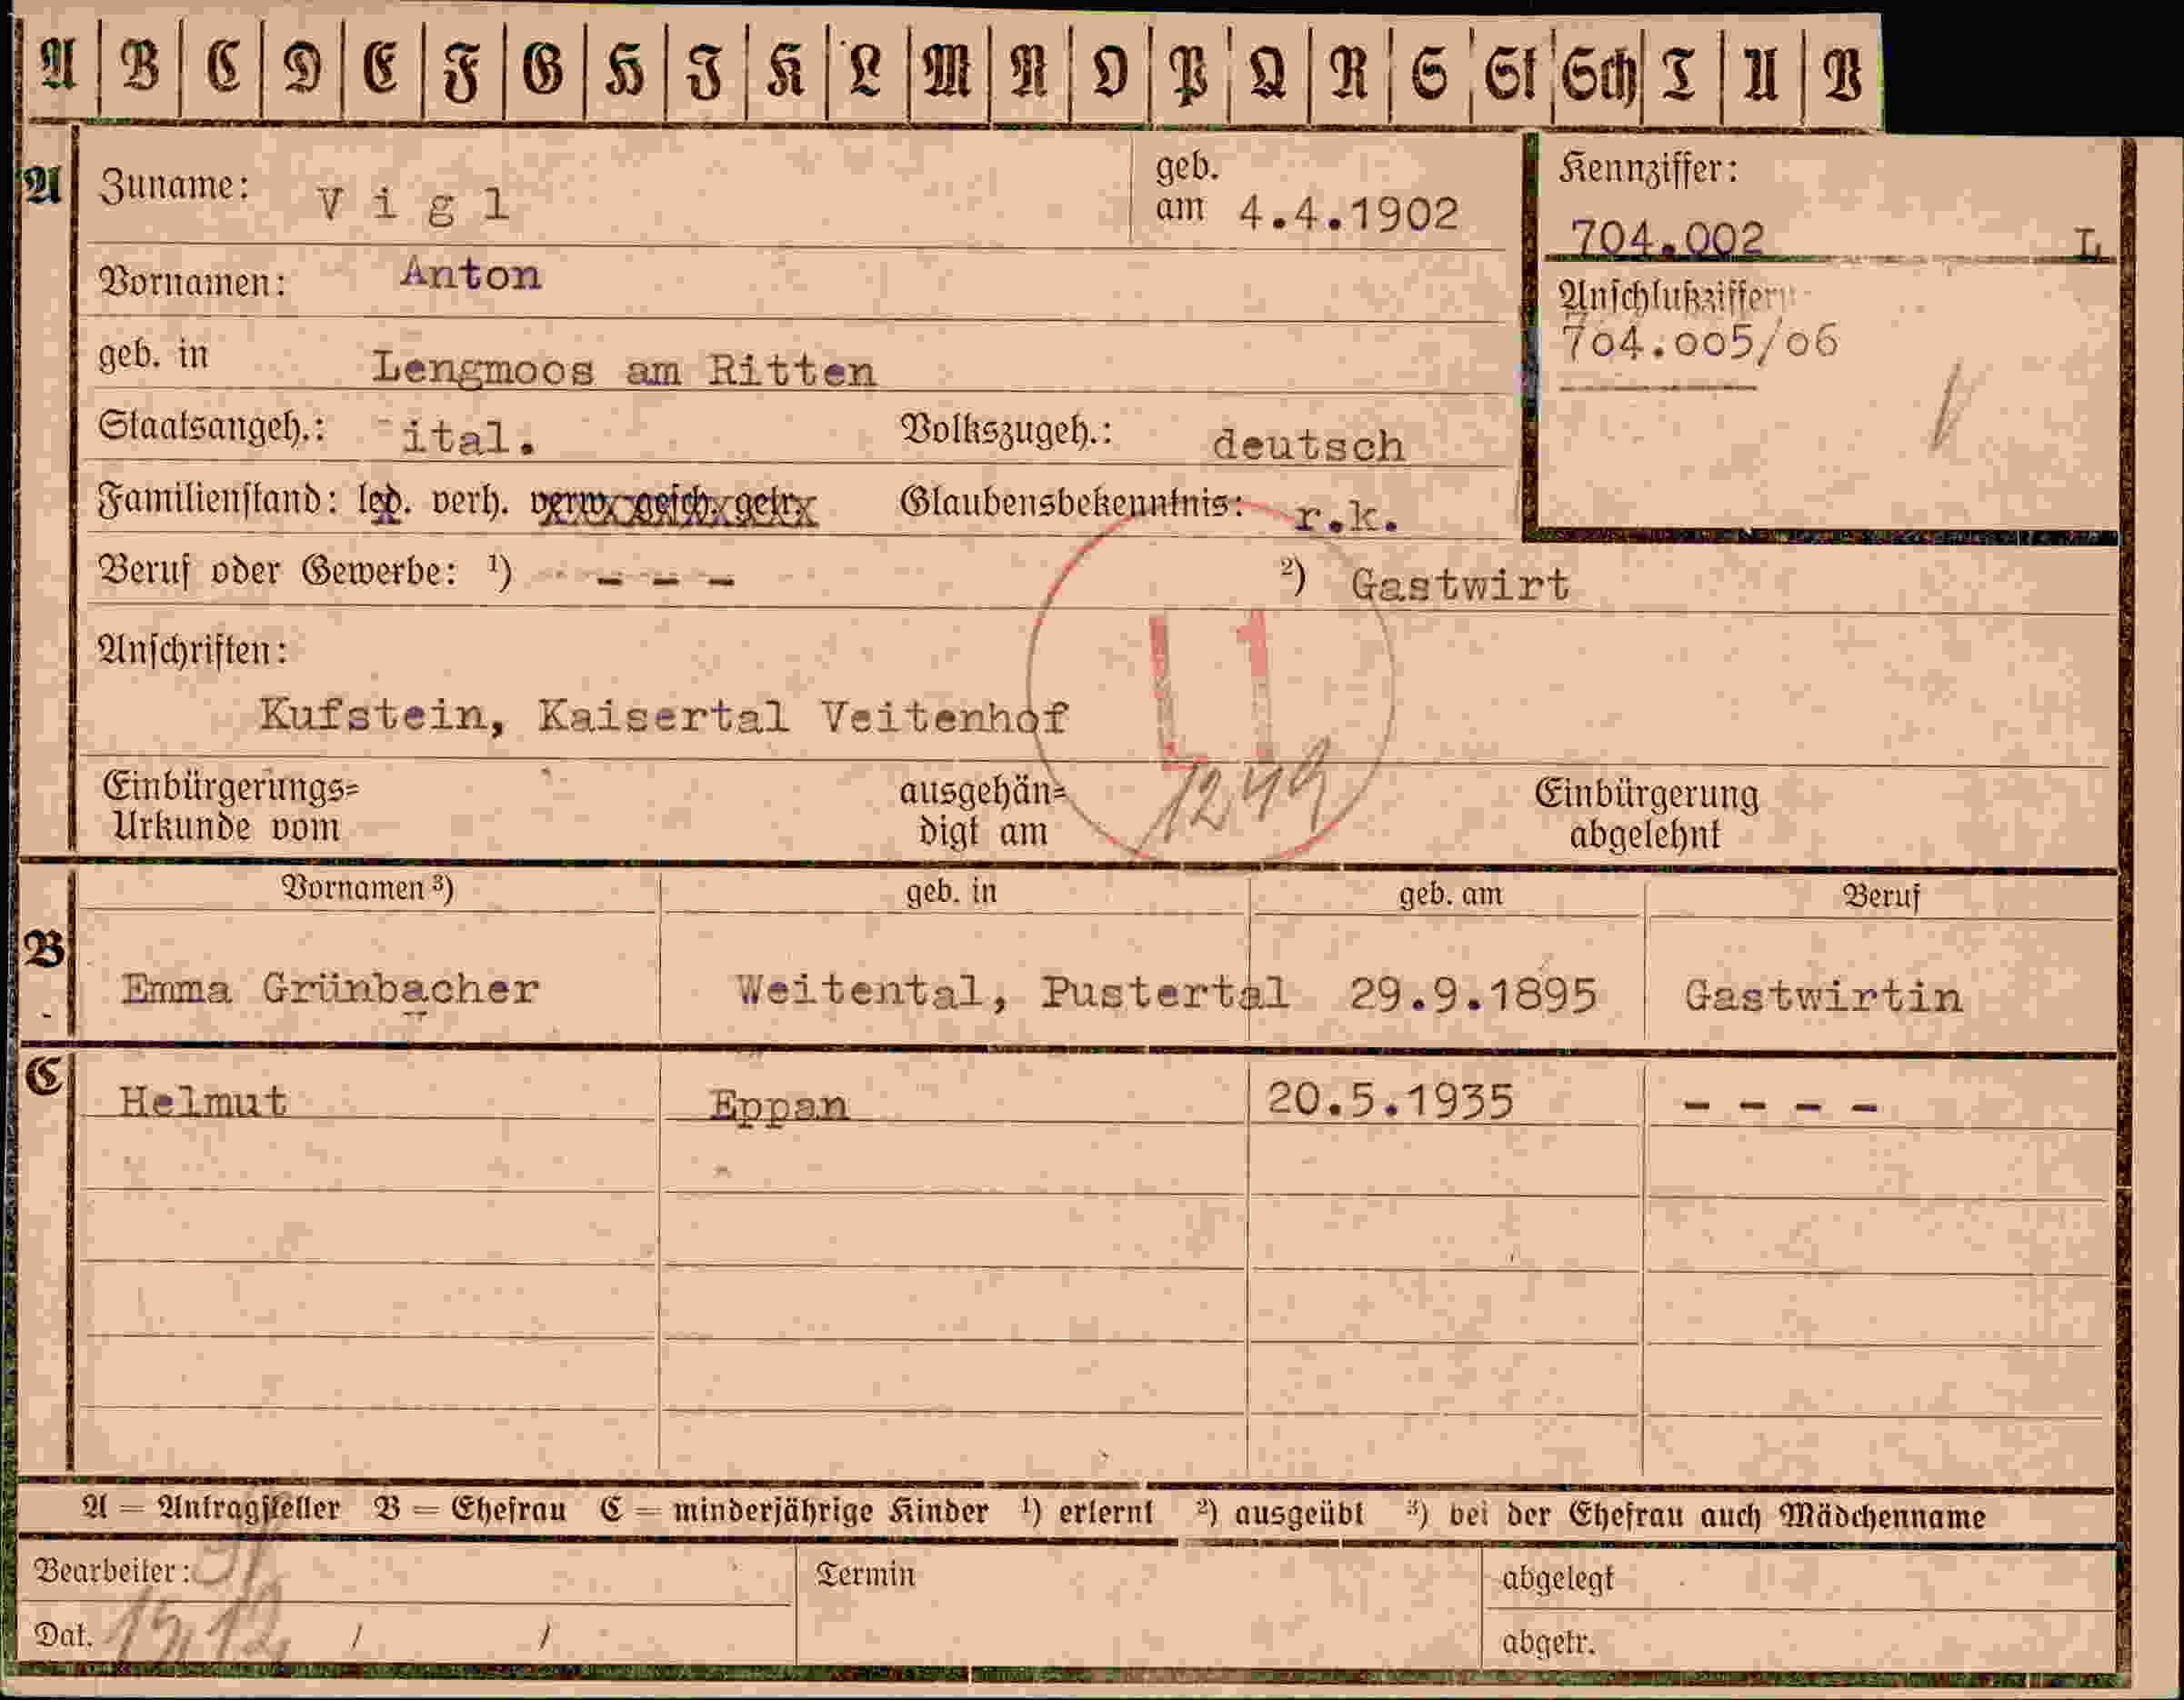 A B C D E F G H I K L M N O P Q R S St Sch T U V
A Zuname: V i g l geb. am 4.4.1902
Kennziffer:
704.002 L
Vornamen: Anton
Anschlußziffer:
704.005/06
geb. in Lengmoos am Ritten
Staatsangeh.: ital. Volkszugeh.: deutsch
Familienstand: led. verh. verw. gesch. getr. Glaubensbekenntnis: r.k.
Beruf oder Gewerbe: ¹) - - - ²) Gastwirt
Anschriften:
L1
Kufstein, Kaisertal Veitenhof
1249
Einbürgerungs= ausgehän= Einbürgerung
Urkunde vom digt am abgelehnt
Vornamen ³) geb. in geb. am Beruf
B Emma Grünbacher Weitental, Pustertal 29.9.1895 Gastwirtin
C Helmut Eppan 20.5.1935 - - - -
A = Antragsteller B = Ehefrau C = minderjährige Kinder ¹) erlernt ²) ausgeübt ³) bei der Ehefrau auch Mädchenname
Bearbeiter: Termin abgelegt
Dat. / / abgetr.